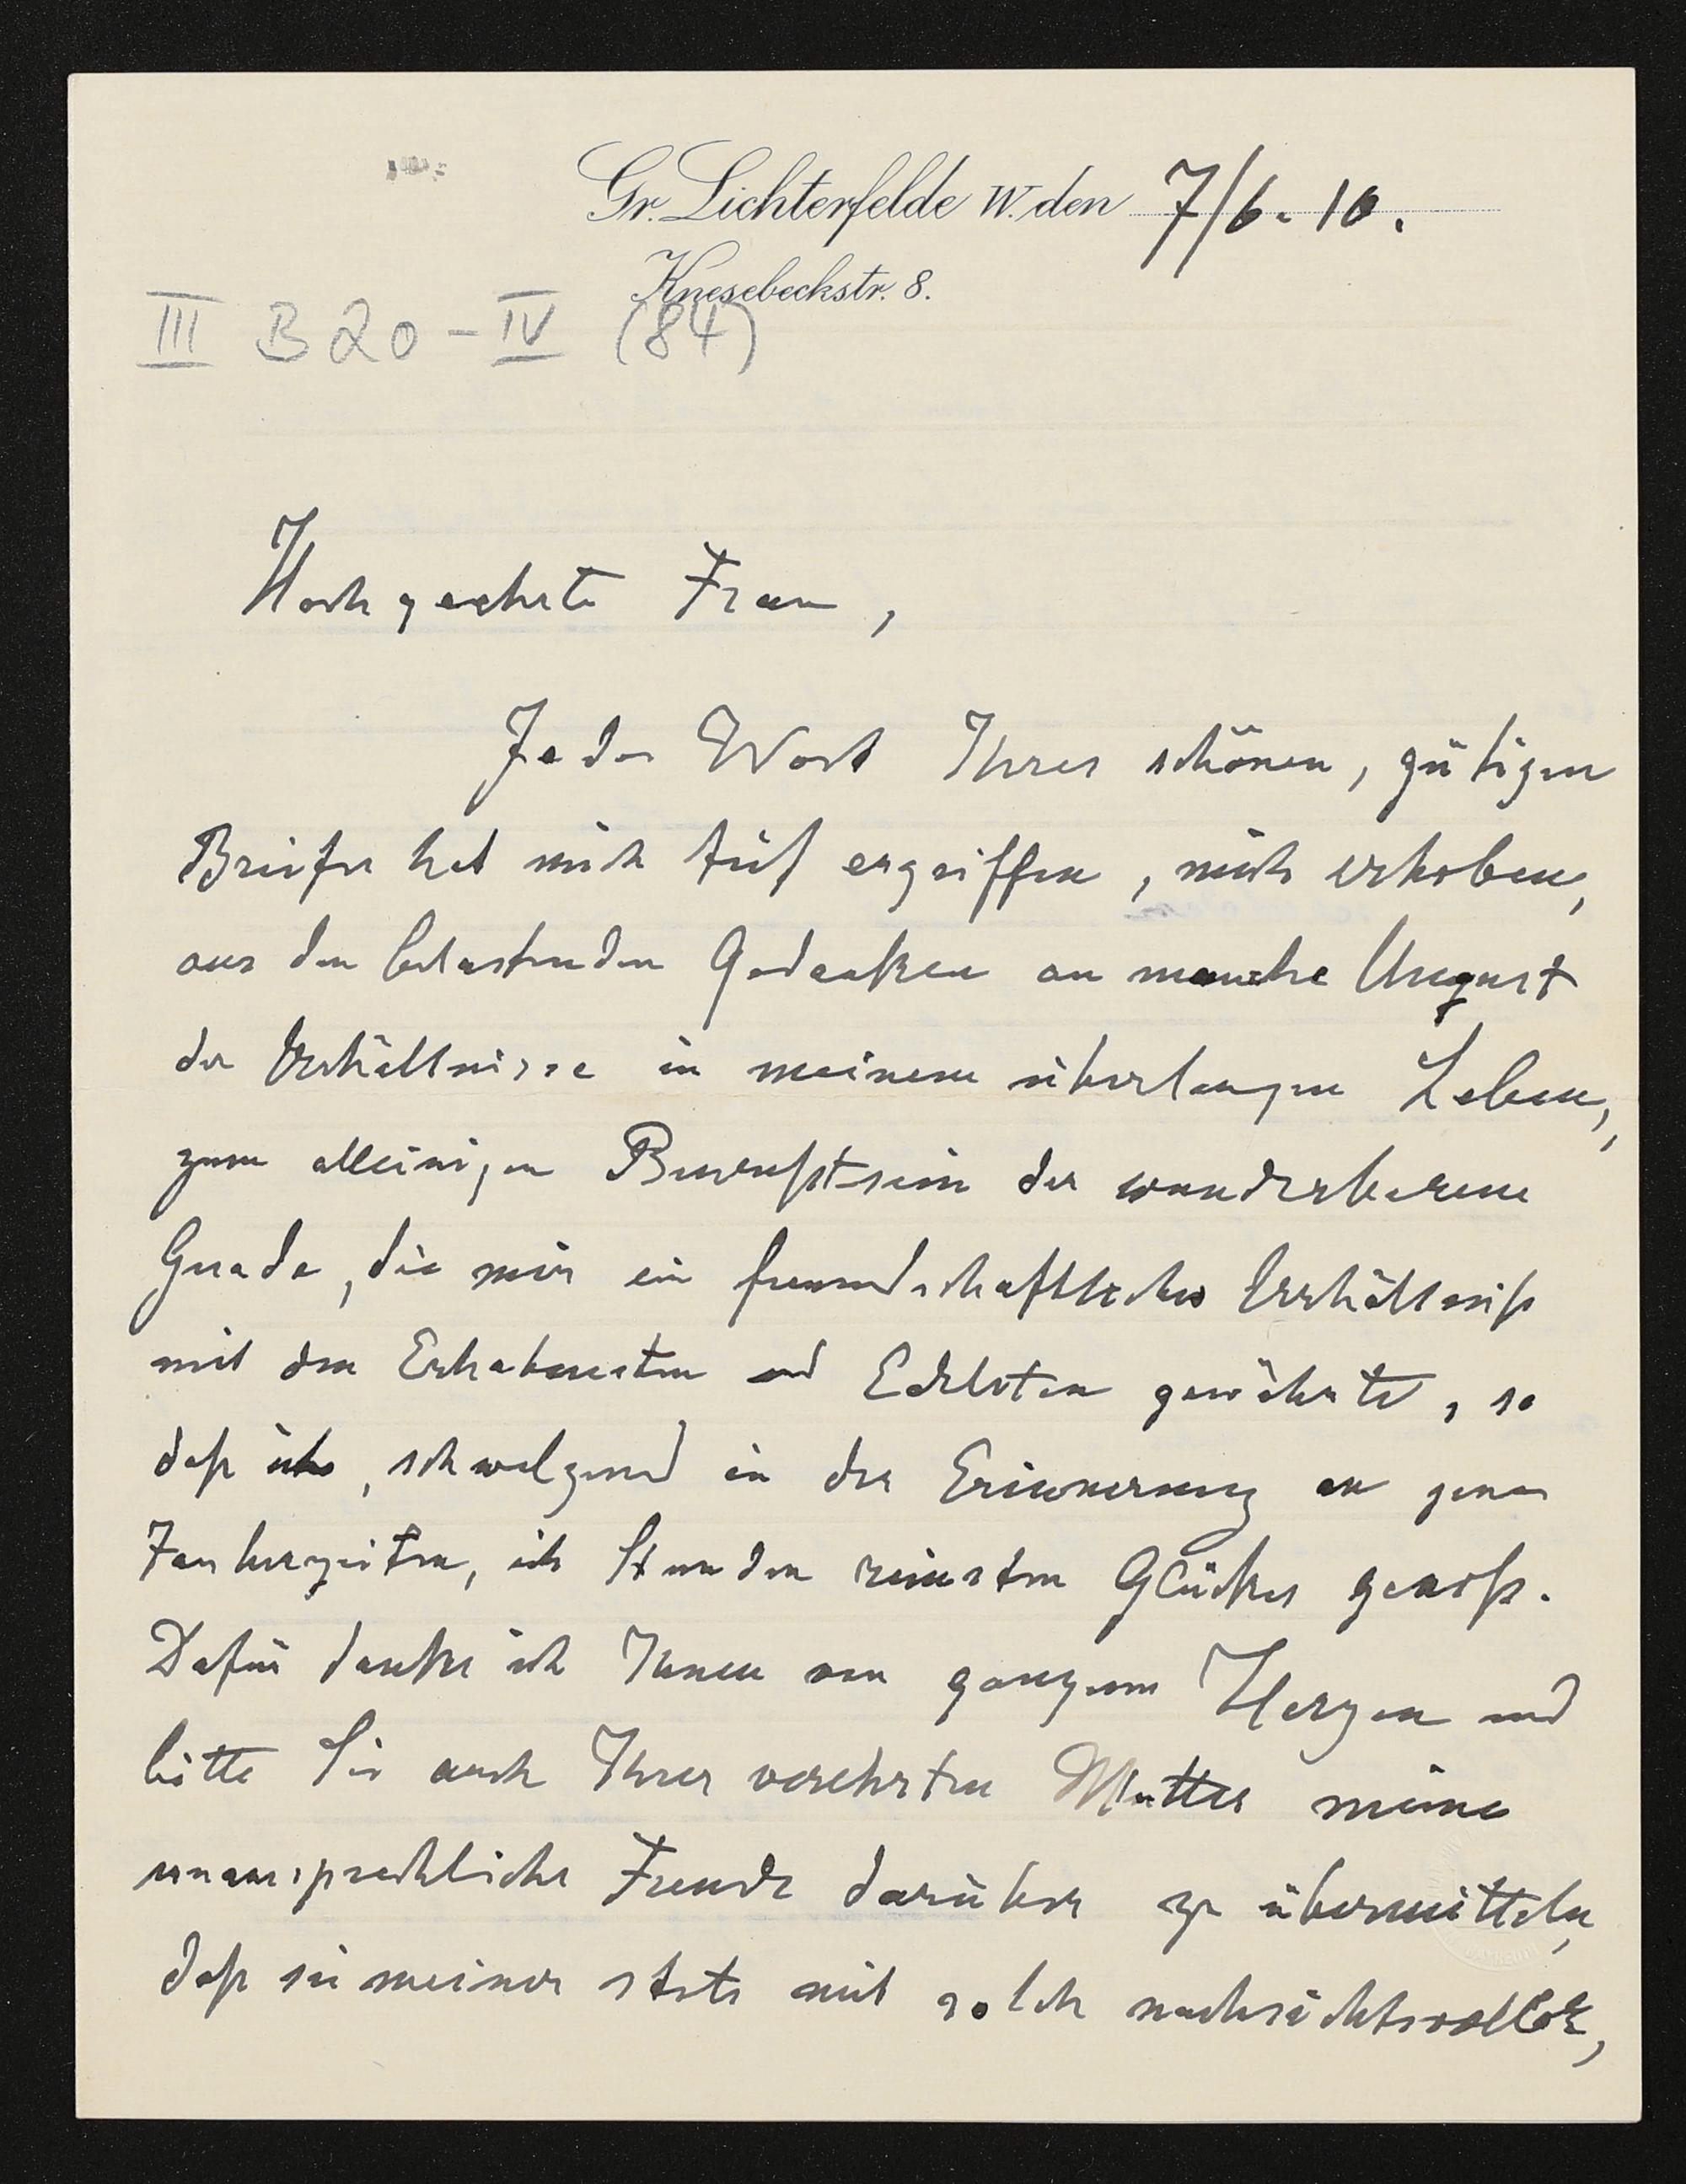 Gr. Lichterfelde W. den 7/6. 10.
Knesebeckstr. 8.
III B 20 - IV (84)
Hochgeehrte Frau,
Jedes Wort Ihres schönen, gütigen
Briefes hat mich tief ergriffen, mich erhoben,
aus den belastenden Gedanken an manche Ungunst
der Verhältnisse in meinem überlangen Leben,
zum alleinigen Bewußtsein der wunderbaren
Gnade, die mir ein freundschaftliches Verhältniß
mit den Erhabensten und Edelsten gewährte, so
daß ich, schwelgend in der Erinnerung an jene
Zauberzeiten, ich Stunden reinsten Glückes genoß.
Dafür danke ich Ihnen von ganzem Herzen und
bitte Sie auch Ihrer verehrten Mutter meine
unaussprechliche Freude darüber zu übermitteln,
daß sie meiner stets mit solch nachsichtsvoller,